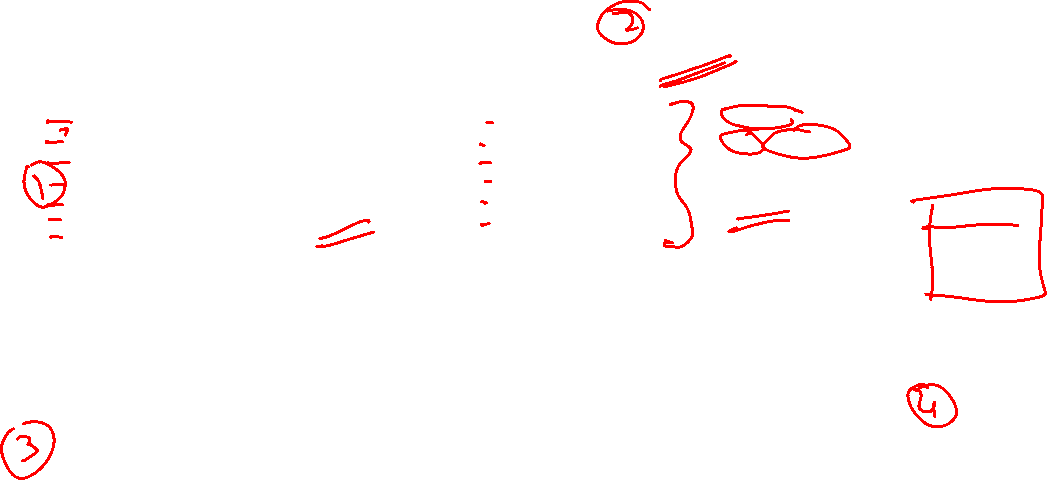 2
1
3
4